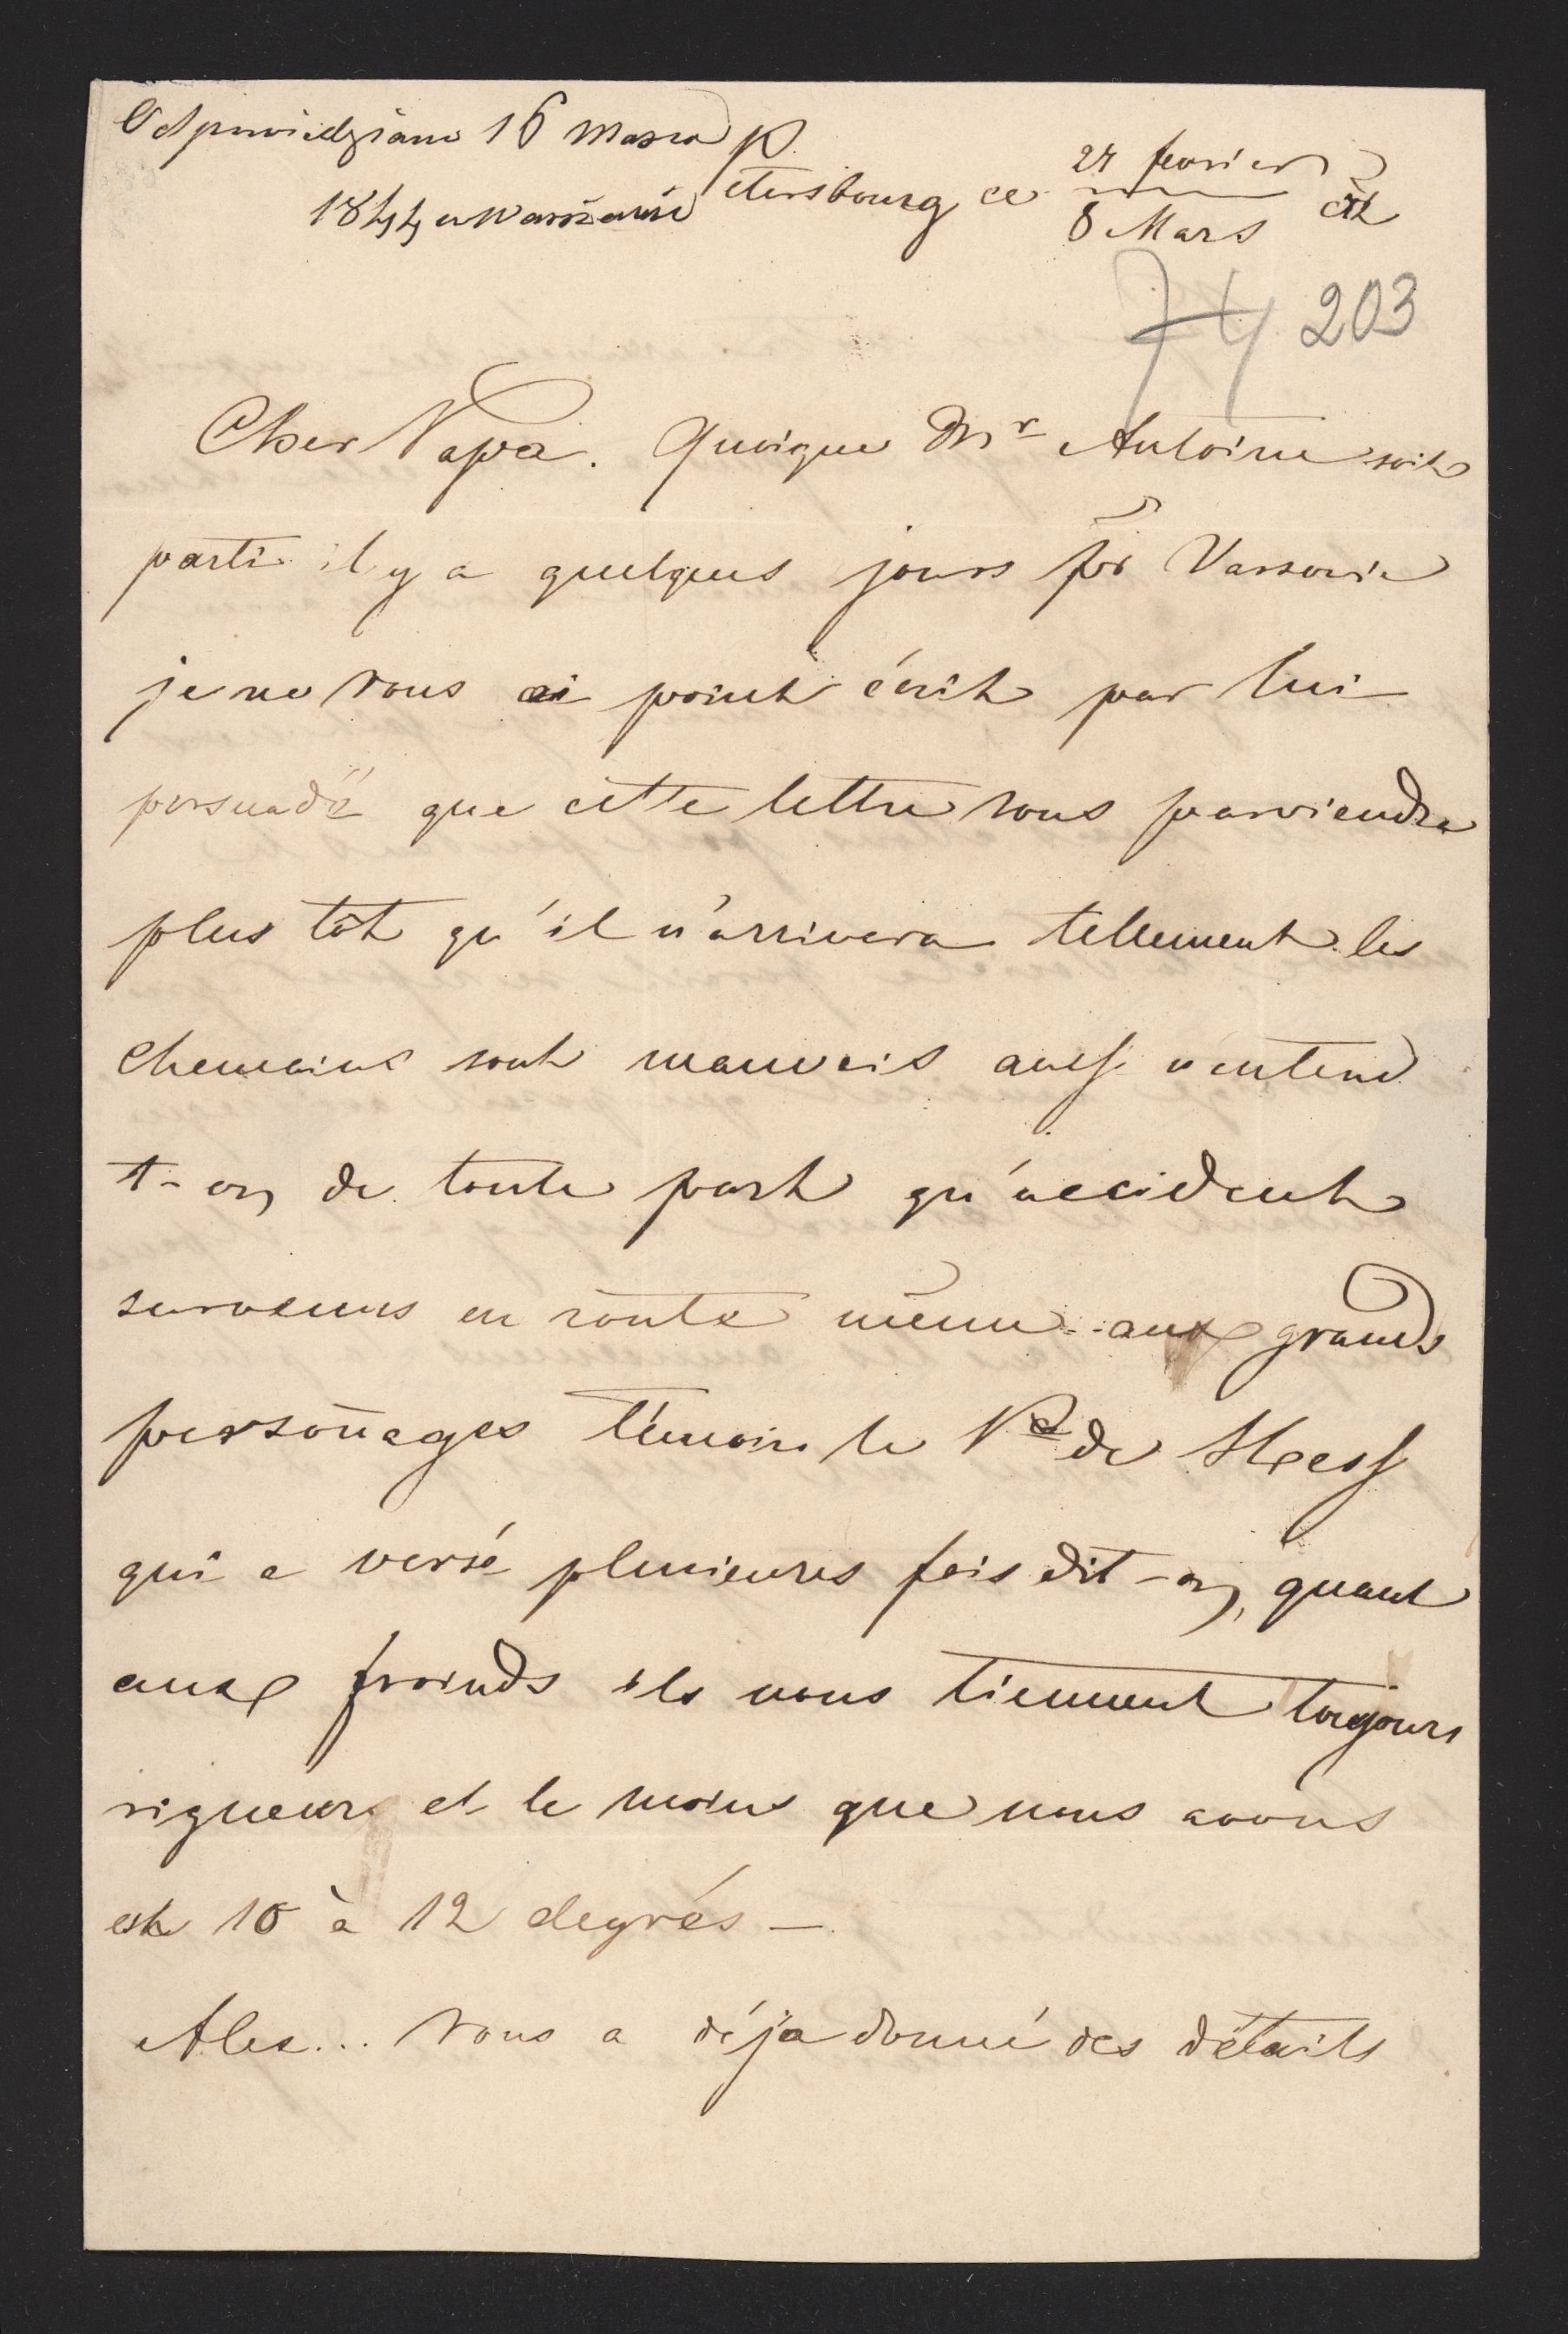 Odpowiedziano 16 Marca
1844 w Warszawie
Petersbourg ce 24 fevrier
8 Mars
74 203
Cher Papa. Quoique Mr Antoine soit
parti il y a quelques jours pr Varsovie
je ne vous ai point écrit par lui
persuadé que cette lettre vous parviendra
plus tôt qu'il n'arrivera tellement les
chemains sont mauvais aussi n'entend
t-on de toute part qu'accident
survenus en route même aux grands
personnages témoin le Pce de Hess
qui a versé plusieures fois dit-on, quant
aux froids ils nous tiennent toujours
rigueur et le moins que nous avons
est 10 à 12 degrés —
Alex... vous a déja donné des détails